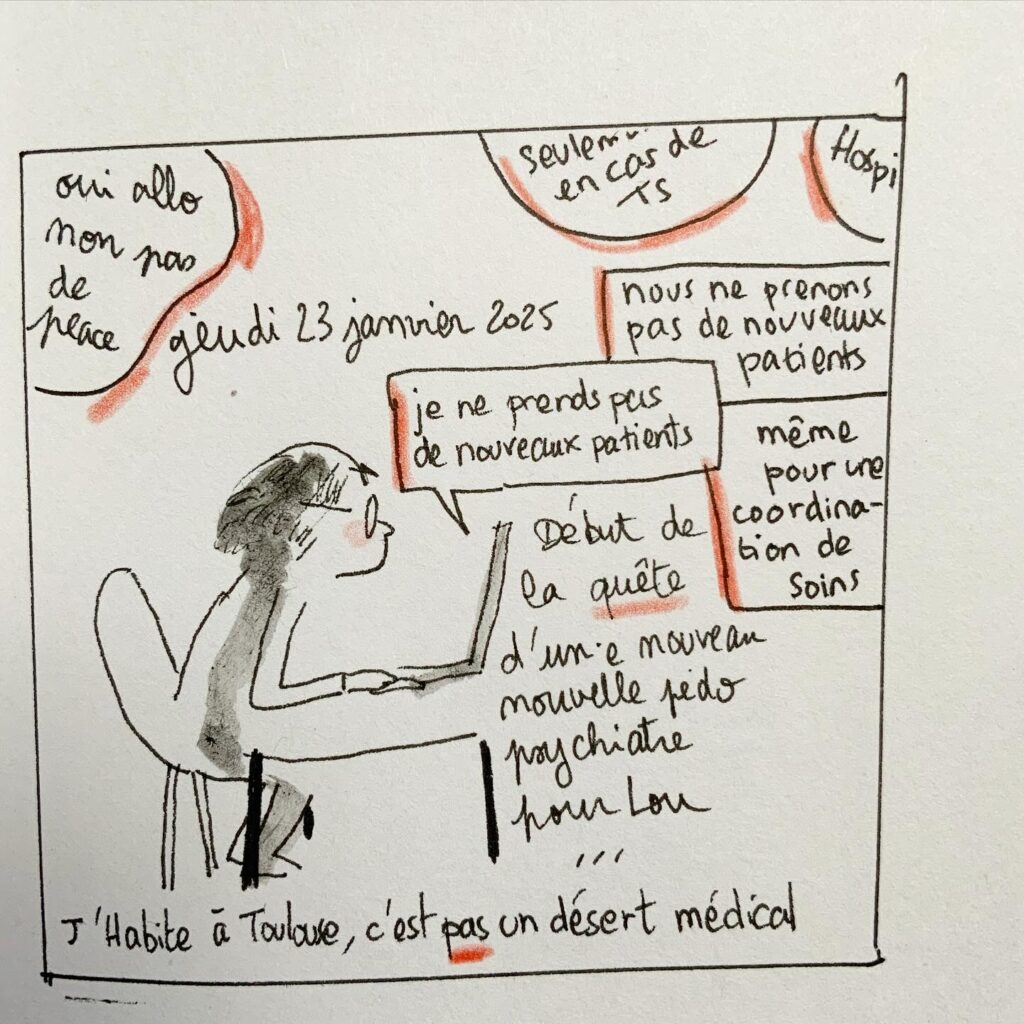 oui allo
non pas
de
peace
seulem
en cas de
TS
Hospi
jeudi 23 janvier 2025
nous ne prenons
pas de nouveaux
patients
je ne prends pas
de nouveaux patients
même
pour une
coordina-
tion de
soins
Début de
la quête
d'un·e nouveau
nouvelle pédo
psychiatre
pour Lou
...
J'Habite à Toulouse, c'est pas un désert médical